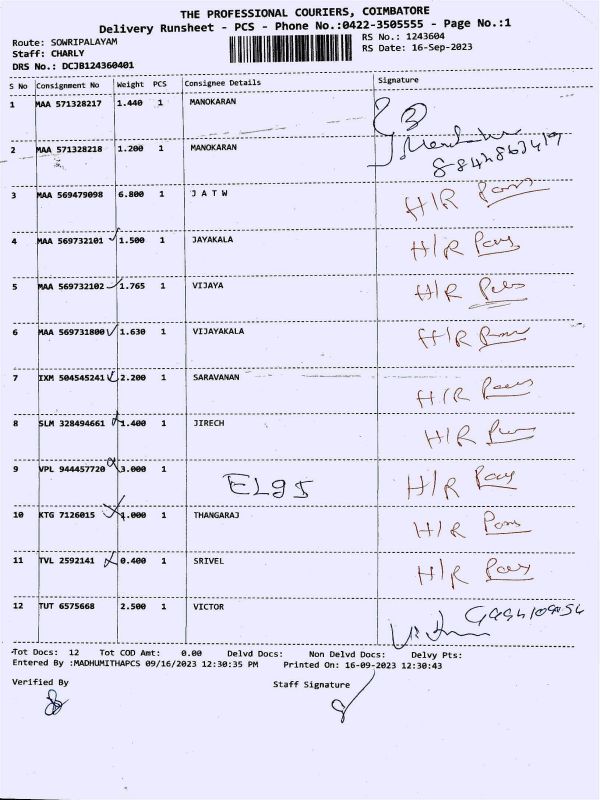 THE PROFESSIONAL COURIERS, COIMBATORE
Delivery Runsheet - PCS - Phone No.:0422-3505555 - Page No.:1
Route: SOWRIPALAYAM
RS No.: 1243604
Staff: CHARLY
RS Date: 16-Sep-2023
DRS No.: DCJB124360401
S No Consignment No Weight PCS Consignee Details Signature
1 MAA 571328217 1.440 1 MANOKARAN
2 MAA 571328218 1.200 1 MANOKARAN
3 MAA 569479098 6.800 1 J A T W H/R
4 MAA 569732101 1.500 1 JAYAKALA H/R
5 MAA 569732102 1.765 1 VIJAYA H/R
6 MAA 569731800 1.630 1 VIJAYAKALA H/R
7 IXM 504545241 2.200 1 SARAVANAN H/R
8 SLM 328494661 1.400 1 JIRECH H/R
9 VPL 944457720 3.000 1 ELGI H/R
10 KTG 7126015 1.000 1 THANGARAJ H/R
11 TVL 2592141 0.400 1 SRIVEL H/R
12 TUT 6575668 2.500 1 VICTOR
Tot Docs: 12 Tot COD Amt: 0.00 Delvd Docs: Non Delvd Docs: Delvy Pts:
Entered By :MADHUMITHAPCS 09/16/2023 12:30:35 PM Printed On: 16-09-2023 12:30:43
Verified By
Staff Signature